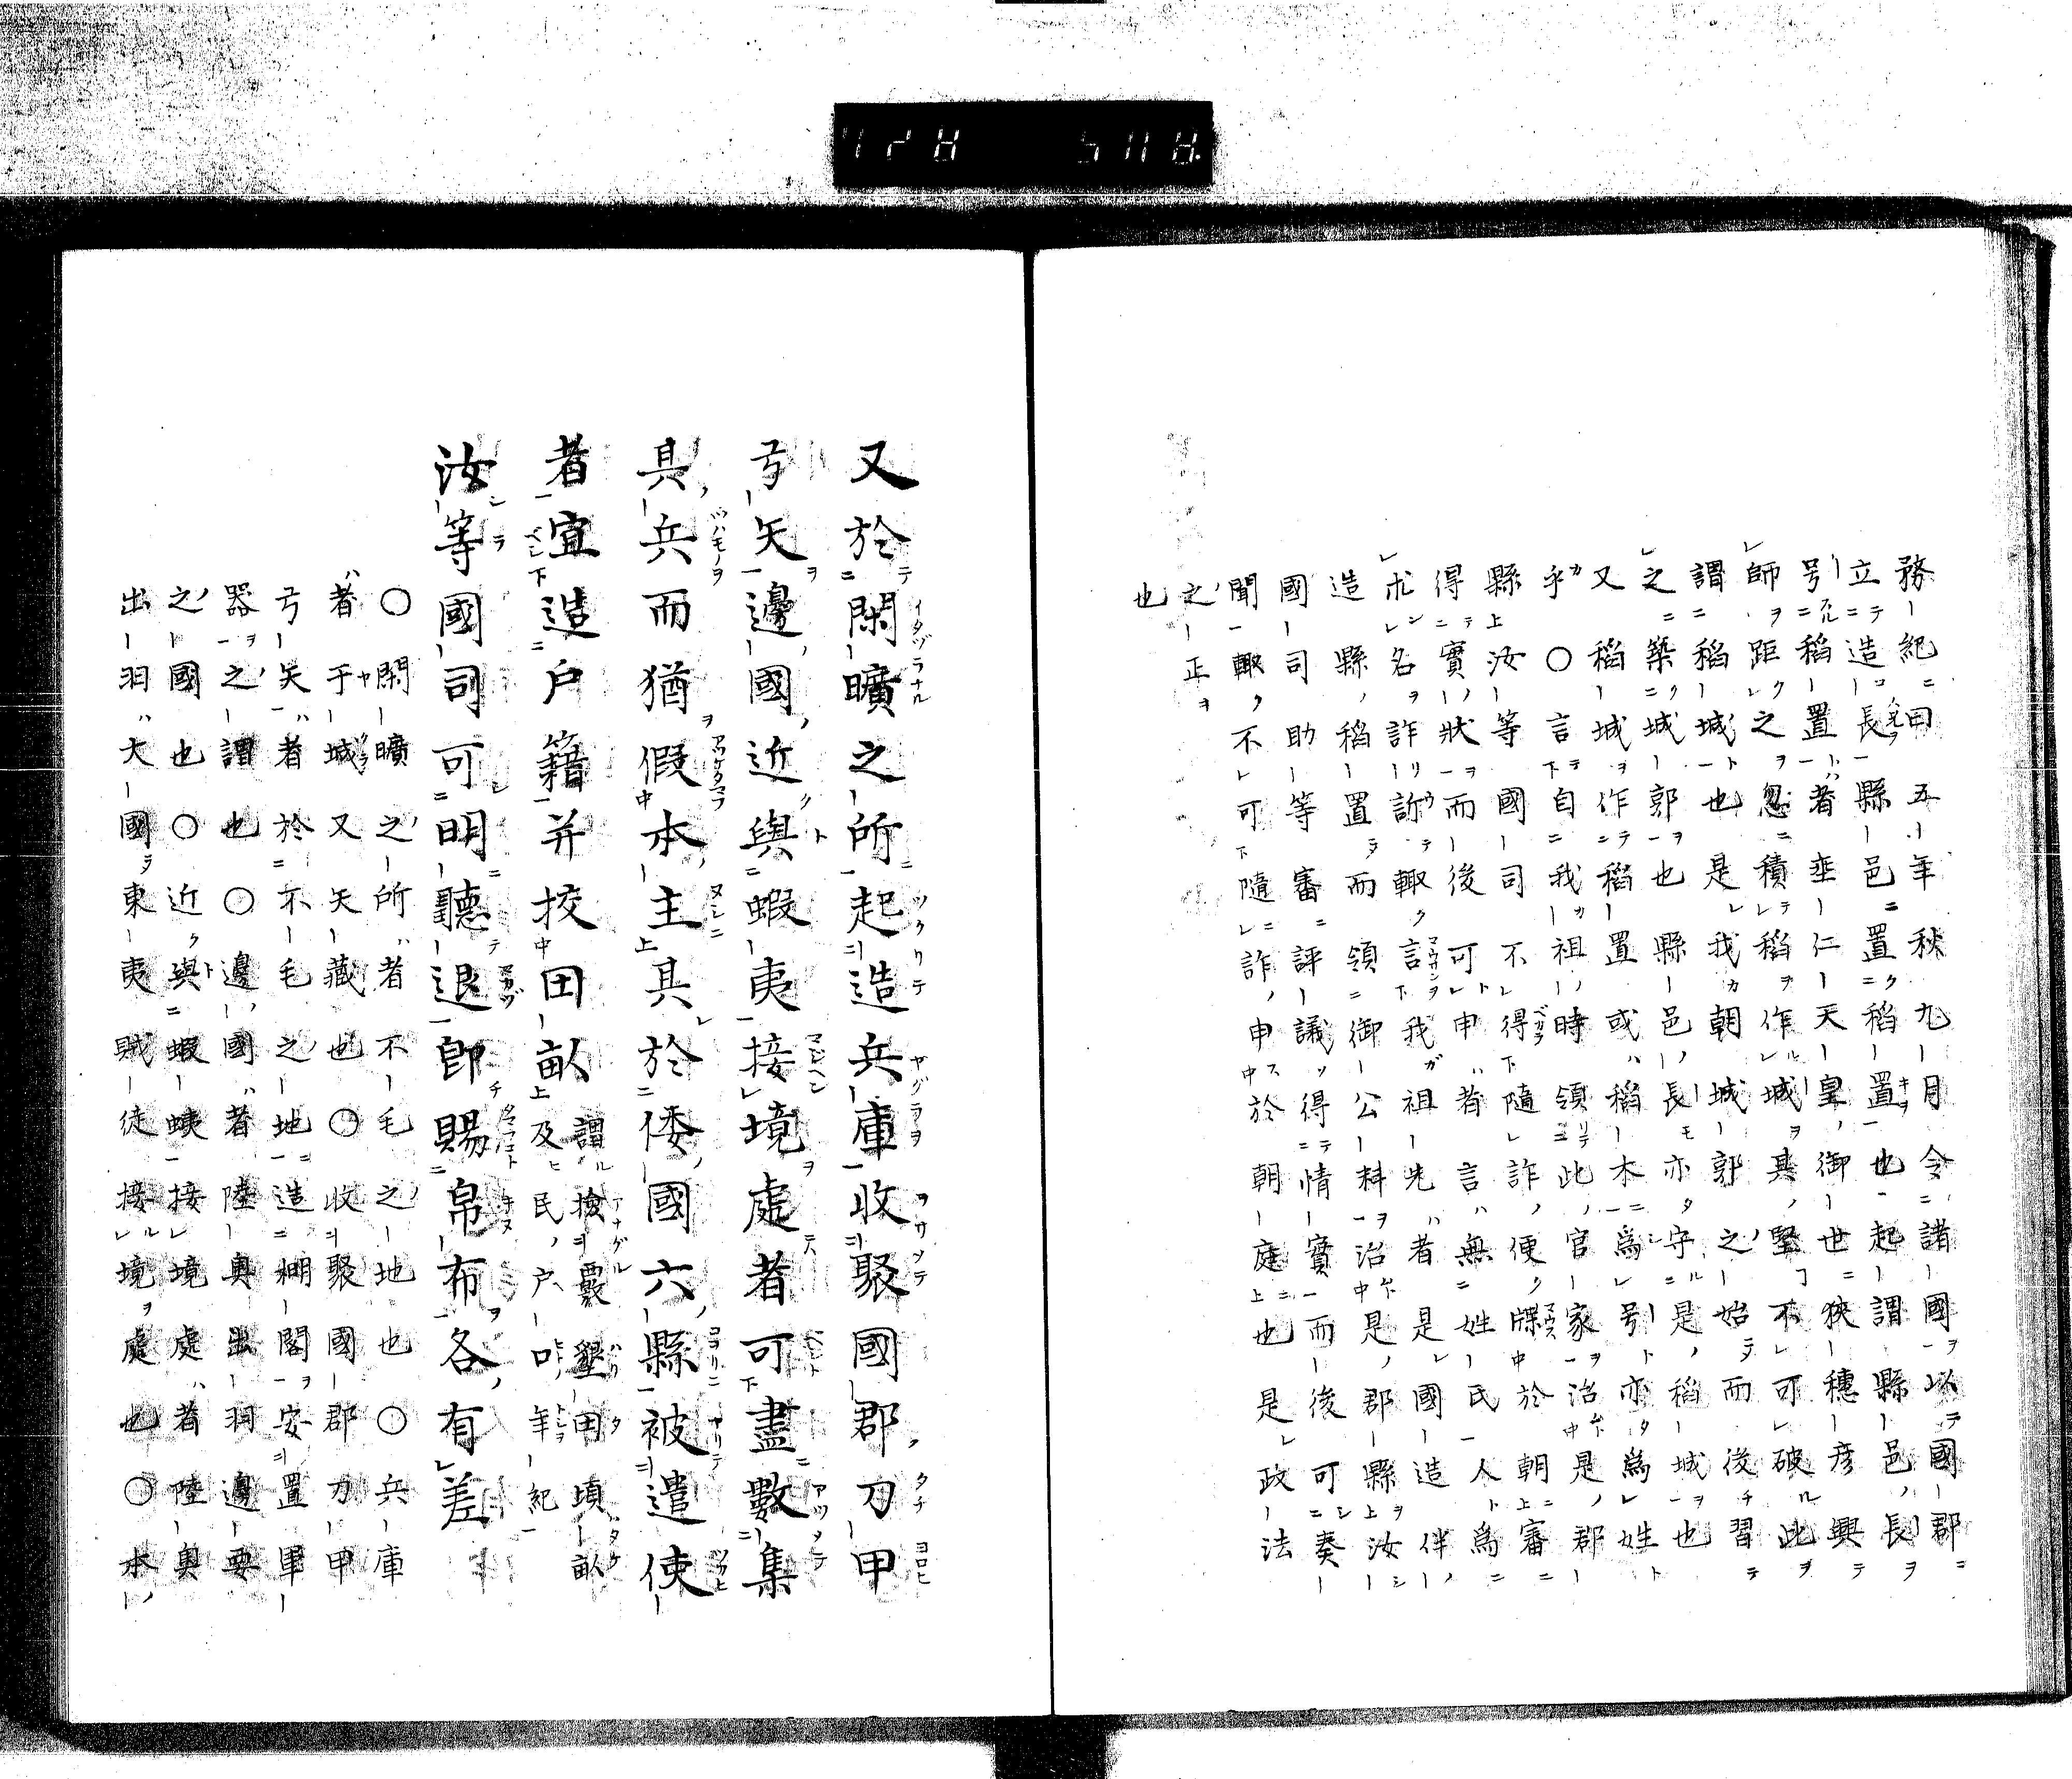 務紀曰五年秋九月令諸國以國郡
立造長縣邑置稻置也起謂縣邑長
号稻置者垂仁天皇御世狹穗彦興
師距之忽積稻作城其堅不可破此
謂稻城也是我朝城郭之始而後習
之築城郭也縣邑長亦守是稻城也
又稻城作稻置或稻木為号亦為姓
乎〇言自我祖時領此官家治是郡
縣汝等國司不得隨詐便牒於朝審
得實狀而後可申者言無姓民人為
朮名詐訴輙言我祖先者是國造伴
造縣稻置而領御公料治是郡縣汝
國司助等審評議得情實而後可奏
聞輙不可隨詐申於朝庭也是政法
之正
也
又於閑曠之所起造兵庫收聚國郡刀甲
弓矢邊國近與蝦夷接境處者可盡數集
具兵而猶假本主其於倭國六縣被遣使
者宜造戸籍并挍田畝謂撿覈墾田頃畝
及民戸口年紀
汝等國司可明聽退即賜帛布各有差
〇閑曠之所者不毛之地也〇兵庫
者于城又矢藏也〇收聚國郡刀甲
弓矢者於不毛之地造棚閣安置軍
器之謂也〇邊國者陸奥出羽邊要
之國也〇近與蝦蛦接境處者陸奥
出羽大國東夷賊徒接境處也〇本